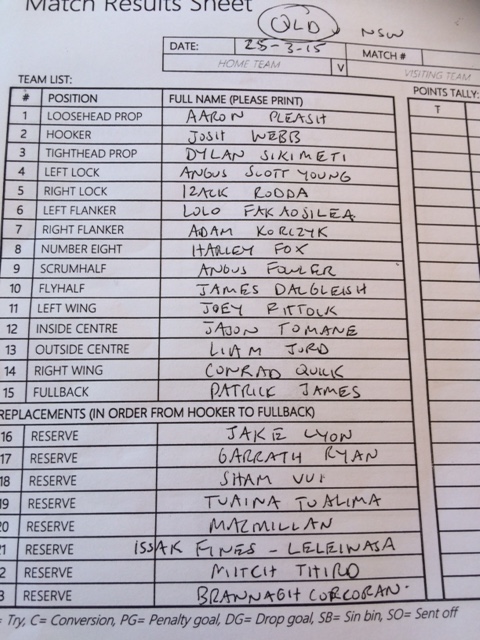 Match Results Sheet
QLD NSW
DATE: 25-3-15 MATCH #
HOME TEAM V VISITING TEAM
TEAM LIST: POINTS TALLY:
# POSITION FULL NAME (PLEASE PRINT) T
1 LOOSEHEAD PROP AARON PLEASH
2 HOOKER JOSH WEBB
3 TIGHTHEAD PROP DYLAN SIKIMETI
4 LEFT LOCK ANGUS SCOTT YOUNG
5 RIGHT LOCK IZACK RODDA
6 LEFT FLANKER LOLO FAKAOSILEA
7 RIGHT FLANKER ADAM KORCZYK
8 NUMBER EIGHT HARLEY FOX
9 SCRUMHALF ANGUS FOWLER
10 FLYHALF JAMES DALGLEISH
11 LEFT WING JOEY
12 INSIDE CENTRE JASON TOMANE
13 OUTSIDE CENTRE LIAM
14 RIGHT WING CONRAD QUICK
15 FULLBACK PATRICK JAMES
REPLACEMENTS (IN ORDER FROM HOOKER TO FULLBACK)
16 RESERVE JAKE LYON
17 RESERVE GARRATH RYAN
18 RESERVE SHAM VUI
19 RESERVE TUAINA TUALIMA
20 RESERVE MACMILLAN
21 RESERVE ISSAK FINES - LELEIWASA
2 RESERVE MITCH
3 RESERVE BRANNAGH CORCORAN.
= Try, C= Conversion, PG= Penalty goal, DG= Drop goal, SB= Sin bin, SO= Sent off